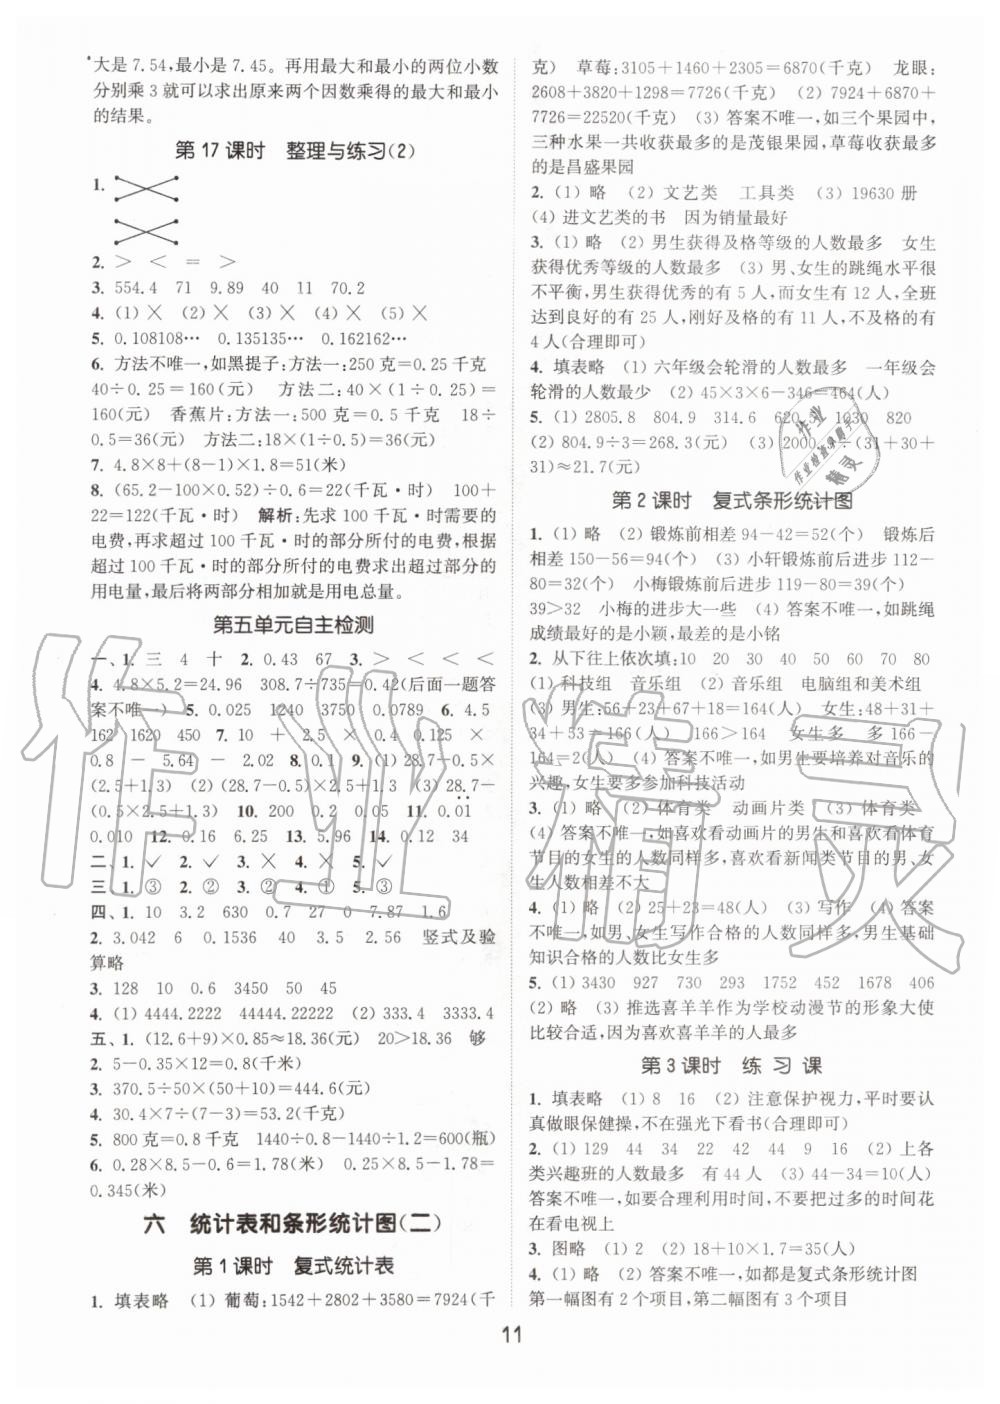 大是 7.54,最小是 7.45。再用最大和最小的两位小数
分别乘 3 就可以求出原来两个因数乘得的最大和最小
的结果。
第 17 课时 整理与练习(2)
1.
2. > < = >
3. 554.4 71 9.89 40 11 70.2
4. (1) × (2) × (3) × (4) × (5) ×
5. 0.108108… 0.135135… 0.162162…
6. 方法不唯一,如黑提子:方法一:250 克=0.25 千克
40÷0.25=160(元) 方法二:40×(1÷0.25)=
160(元) 香蕉片:方法一:500 克=0.5 千克 18÷
0.5=36(元) 方法二:18×(1÷0.5)=36(元)
7. 4.8×8+(8-1)×1.8=51(米)
8. (65.2-100×0.52)÷0.6=22(千瓦·时) 100+
22=122(千瓦·时) 解析:先求 100 千瓦·时需要的
电费,再求超过 100 千瓦·时的部分所付的电费,根据
超过 100 千瓦·时的部分所付的电费求出超过部分的
用电量,最后将两部分相加就是用电总量。
第五单元自主检测
一、1. 三 4 十 2. 0.43 67 3. > < < <
4. 4.8×5.2=24.96 308.7÷735=0.42(后面一题答
案不唯一) 5. 0.025 1240 3750 0.0789 6. 4.5
162 1620 450 7. 10 + 2.5 × 0.4 0.125 ×
0.8 - 5.64 - 2.02 8. 0.1 9. (1) 28.7-0.5×
(2.5+1.3) (2) (28.7-0.5)×2.5+1.3 (3) 28.7-
(0.5×2.5+1.3) 10. 200 0.2 0.02 05 11. 0.01
0.010 12. 0.16 6.25 13. 5.96 14. 0.12 34
二、1. ✓ 2. ✓ 3. × 4. × 5. ✓
三、1. ③ 2. ② 3. ② 4. ① 5. ③
四、1. 10 3.2 630 0.7 27 0 7.87 1.6
2. 3.042 6 0.1536 40 3.5 2.56 竖式及验
算略
3. 128 10 0.6 3450 50 45
4. (1) 4444.2222 44444.22222 (2) 333.4 3333.4
五、1. (12.6+9)×0.85≈18.36(元) 20>18.36 够
2. 5-0.35×12=0.8(千米)
3. 370.5÷50×(50+10)=444.6(元)
4. 30.4×7÷(7-3)=53.2(千克)
5. 800 克=0.8 千克 1440÷0.8-1440÷1.2=600(瓶)
6. 0.28×8.5-0.6=1.78(米) 0.25×8.5-1.78=
0.345(米)
六 统计表和条形统计图(二)
第 1 课时 复式统计表
1. 填表略 (1) 葡萄:1542+2802+3580=7924(千
克) 草莓:3105+1460+2305=6870(千克) 龙眼:
2608+3820+1298=7726(千克) (2) 7924+6870+
7726=22520(千克) (3) 答案不唯一,如三个果园中,
三种水果一共收获最多的是茂银果园,草莓收获最多
的是昌盛果园
2. (1) 略 (2) 文艺类 工具类 (3) 19630 册
(4) 进文艺类的书 因为销量最好
3. (1) 略 (2) 男生获得及格等级的人数最多 女生
获得优秀等级的人数最多 (3) 男、女生的跳绳水平很
不平衡,男生获得优秀的有 5 人,而女生有 12 人,全班
达到良好的有 25 人,刚好及格的有 11 人,不及格的有
4 人(合理即可)
4. 填表略 (1) 六年级会轮滑的人数最多 一年级会
轮滑的人数最少 (2) 45×3×6-346=464(人)
5. (1) 2805.8 804.9 314.6 620.3 1030 820
(2) 804.9÷3=268.3(元) (3) 2000.9÷(31+30+
31)≈21.7(元)
第 2 课时 复式条形统计图
1. (1) 略 (2) 锻炼前相差 94-42=52(个) 锻炼后
相差 150-56=94(个) (3) 小轩锻炼前后进步 112-
80=32(个) 小梅锻炼前后进步 119-80=39(个)
39>32 小梅的进步大一些 (4) 答案不唯一,如跳绳
成绩最好的是小颖,最差的是小铭
2. 从下往上依次填:10 20 30 40 50 60 70 80
(1) 科技组 音乐组 (2) 音乐组 电脑组和美术组
(3) 男生:56+23+67+18=164(人) 女生:48+31+
34+53=166(人) 166>164 女生多 多 166-
164=2(人) (4) 答案不唯一,如男生要培养对音乐的
兴趣,女生要多参加科技活动
3. (1) 略 (2) 体育类 动画片类 (3) 体育类
(4) 答案不唯一,如喜欢看动画片的男生和喜欢看体育
节目的女生的人数同样多,喜欢看新闻类节目的男、女
生人数相差不大
4. (1) 略 (2) 25+23=48(人) (3) 写作 (4) 答案
不唯一,如男、女生写作合格的人数同样多,男生基础
知识合格的人数比女生多
5. (1) 3430 927 730 293 452 1057 1678 406
(2) 略 (3) 推选喜羊羊作为学校动漫节的形象大使
比较合适,因为喜欢喜羊羊的人最多
第 3 课时 练 习 课
1. 填表略 (1) 8 16 (2) 注意保护视力,平时要认
真做眼保健操,不在强光下看书(合理即可)
2. (1) 129 44 34 22 42 44 9 16 (2) 上各
类兴趣班的人数最多 有 44 人 (3) 44-34=10(人)
答案不唯一,如要合理利用时间,不要把过多的时间花
在看电视上
3. 图略 (1) 2 (2) 18+10×1.7=35(人)
4. (1) 略 (2) 答案不唯一,如都是复式条形统计图
第一幅图有 2 个项目,第二幅图有 3 个项目
11
作业精灵